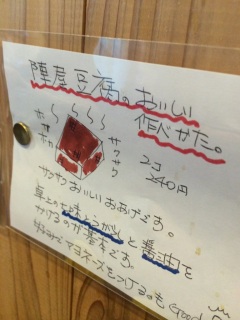 陣屋豆腐のおいしい
作べかた。
ホカホカ
サクサク
2コ
240円
サクサクおいしいおあげです。
卓上の七味とうがらしと醤油を
かけるのが基本です。
お好みでマヨネーズをつけるのもGood